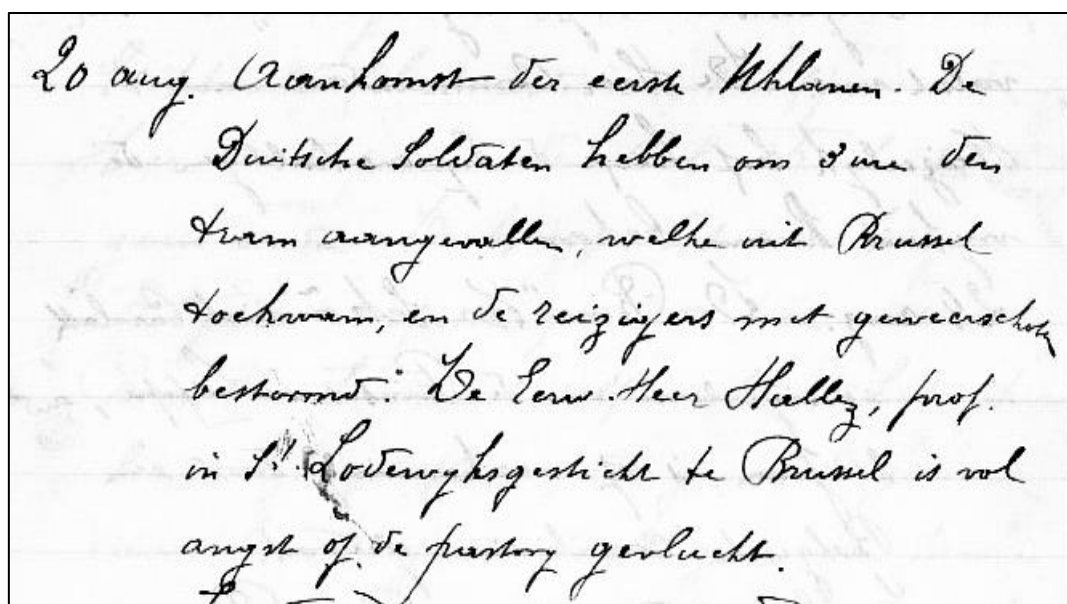 20 aug. Aankomst der eerste Uhlanen. De
Duitsche Soldaten hebben om 3 ure den
tram aangevallen, welke uit Brussel
toekwam, en de reizigers met geweerschoten
bestormd. De Eerw. Heer Hallez, prof.
in St Lodewyksgesticht te Brussel is vol
angst of de pastory gevlucht.